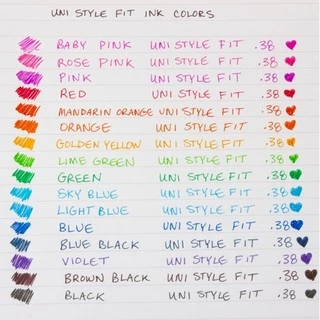 UNI STYLE FIT INK COLORS
BABY PINK UNI STYLE FIT .38
ROSE PINK UNI STYLE FIT .38
PINK UNI STYLE FIT .38
RED UNI STYLE FIT .38
MANDARIN ORANGE UNI STYLE FIT .38
ORANGE UNI STYLE FIT .38
GOLDEN YELLOW UNI STYLE FIT .38
LIME GREEN UNI STYLE FIT .38
GREEN UNI STYLE FIT .38
SKY BLUE UNI STYLE FIT .38
LIGHT BLUE UNI STYLE FIT .38
BLUE UNI STYLE FIT .38
BLUE BLACK UNI STYLE FIT .38
VIOLET UNI STYLE FIT .38
BROWN BLACK UNI STYLE FIT .38
BLACK UNI STYLE FIT .38